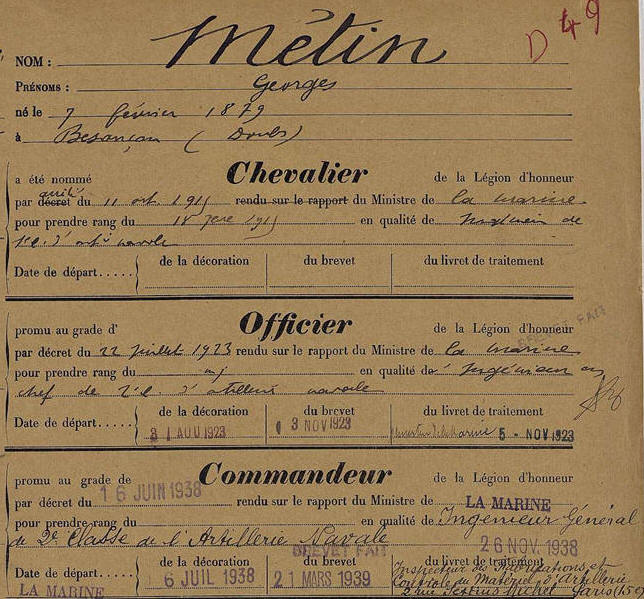 D 49
NOM : Métin
PRÉNOMS : Georges
né le 7 février 1879
à Besançon (Doubs)
a été nommé Chevalier de la Légion d'honneur
par décret arrêté du 11 oct. 1915 rendu sur le rapport du Ministre de la marine
pour prendre rang du en qualité de Ingénieur de
1e cl. d'artie navale
Date de départ..... de la décoration du brevet du livret de traitement
promu au grade d' Officier de la Légion d'honneur
BREVET FAIT
par décret du 22 juillet 1923 rendu sur le rapport du Ministre de la marine
pour prendre rang du en qualité d' Ingénieur en
chef de 2e cl. d'artillerie navale
Date de départ..... de la décoration du brevet du livret de traitement
31 AOU 1923 3 NOV 1923 5 - NOV 1923
promu au grade de Commandeur de la Légion d'honneur
par décret du 16 JUIN 1938 rendu sur le rapport du Ministre de LA MARINE
pour prendre rang du en qualité de Ingénieur Général
de 2e Classe de l'Artillerie Navale
BREVET FAIT 26 NOV. 1938
Date de départ..... de la décoration du brevet du livret de traitement
LA MARINE 6 JUIL 1938 21 MARS 1939
Inspecteur des Fabrications et
Contrôle du Matériel d'Artillerie
2 rue Sextius Michel Paris (15